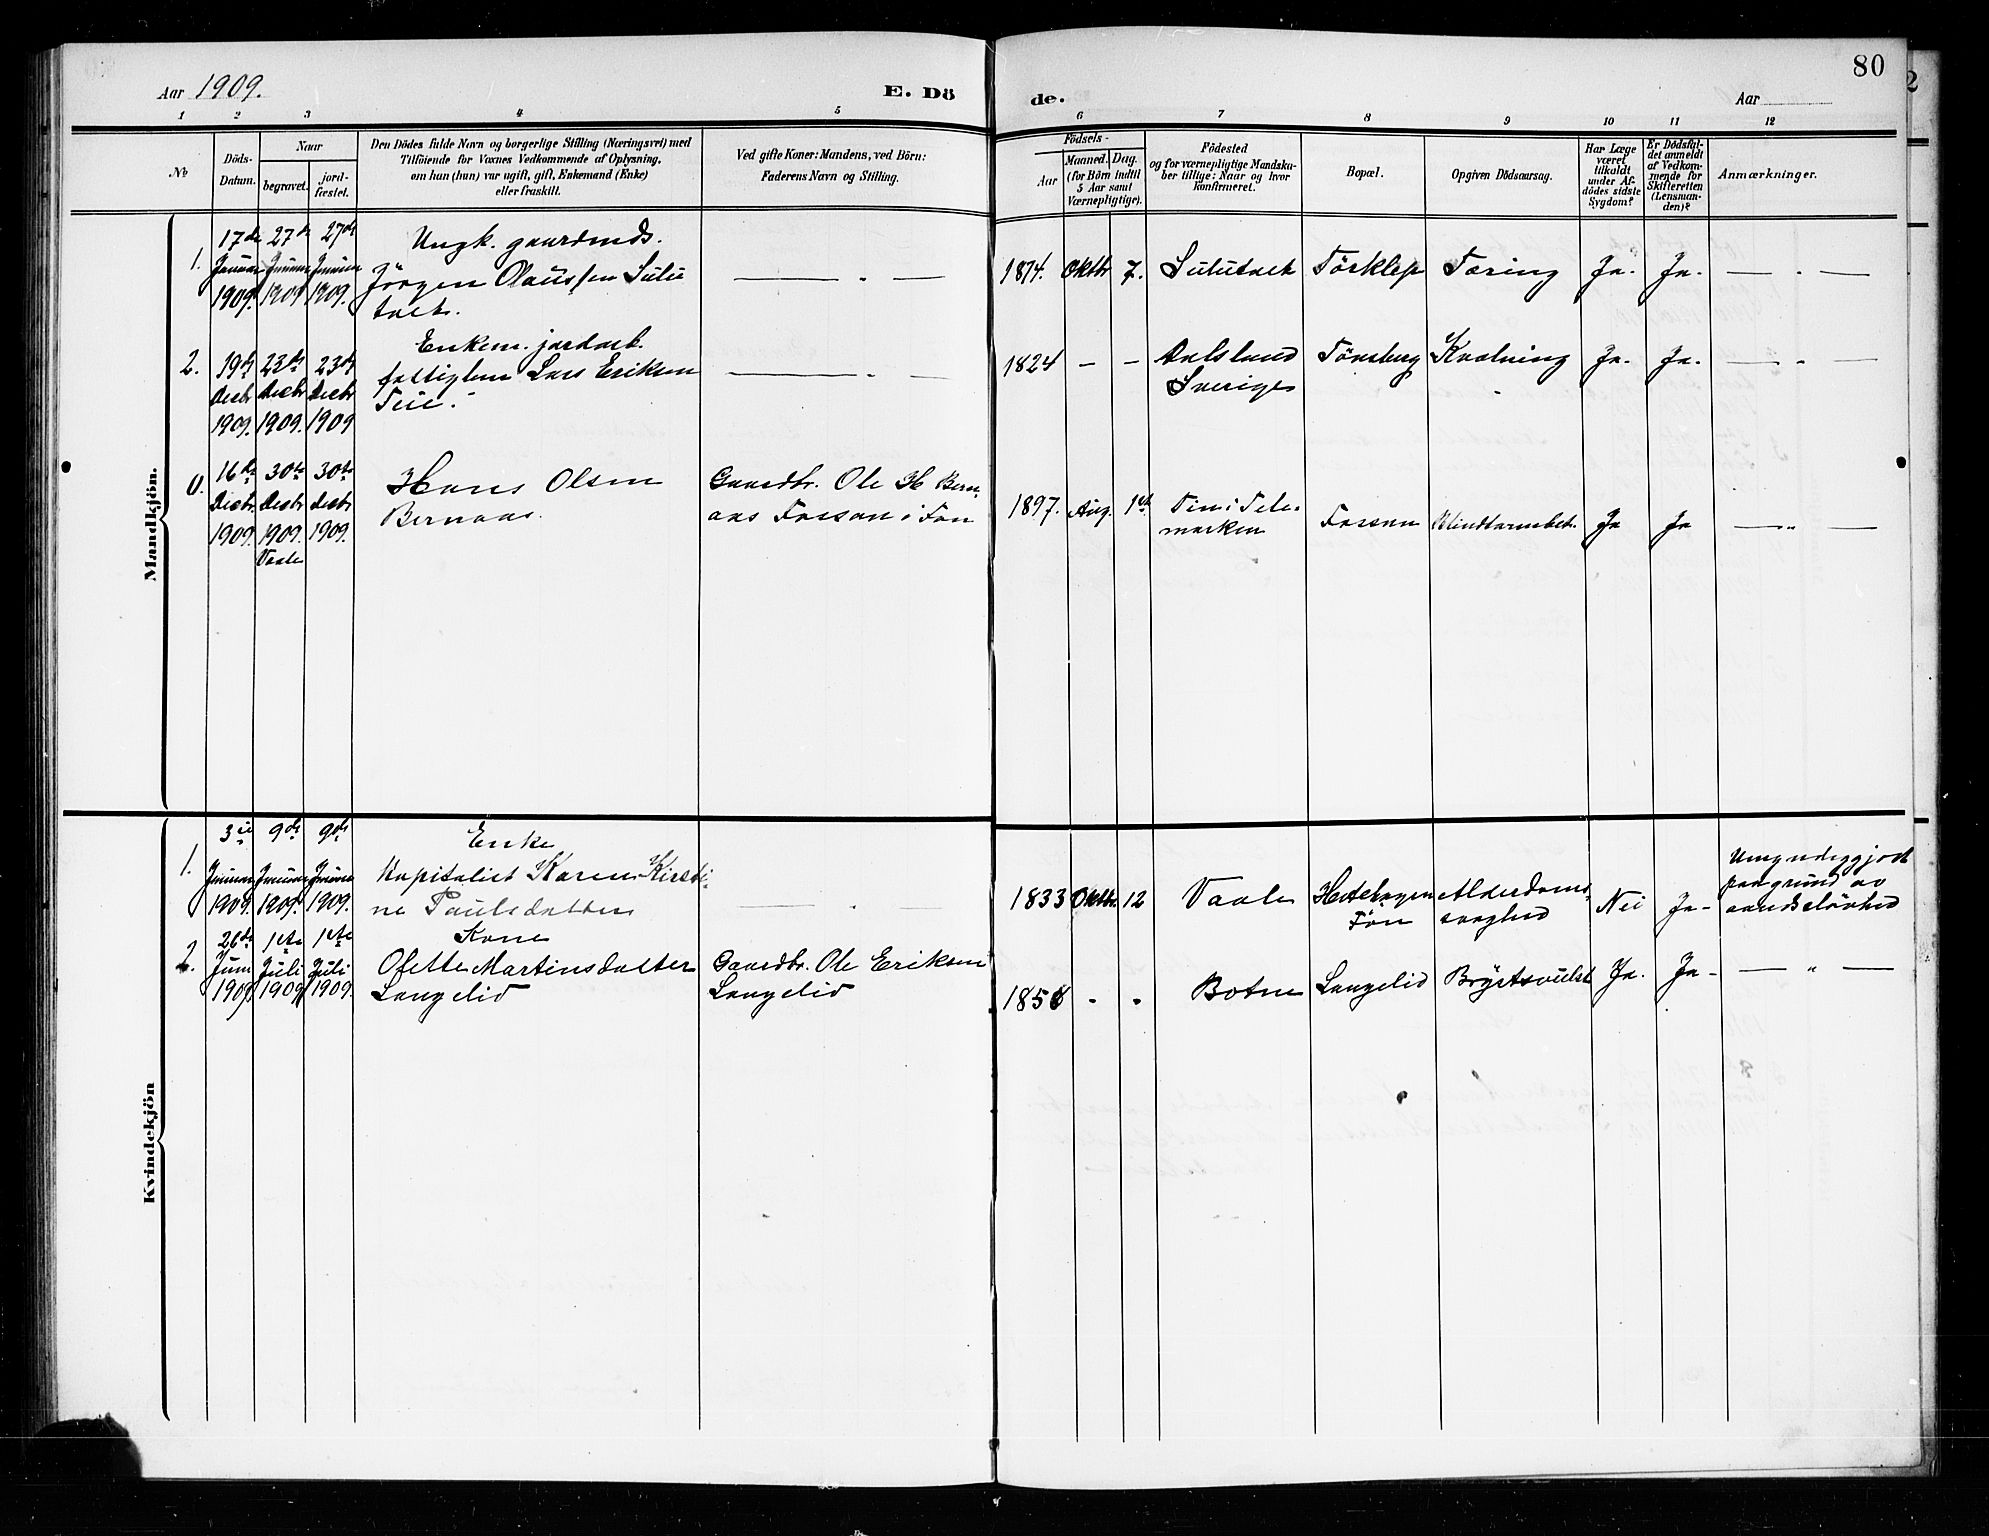 80
Aar 1909.
E. Dö
de.
Aar
1 2 3 4 5 6 7 8 9 10 11 12
No
Döds-
Datum.
Naar
begravet.
jord-
fæstet.
Den Dödes fulde Navn og borgerlige Stilling (Næringsvei) med
Tilföiende for Voxnes Vedkommende af Oplysning,
om han (hun) var ugift, gift, Enkemand (Enke)
eller fraskilt.
Ved gifte Koner: Mandens, ved Börn:
Faderens Navn og Stilling.
Födsels-
Aar
Maaned. Dag.
(for Börn indtil
5 Aar samt
Værnepligtige).
Födested
og for værnepligtige Mandska-
ber tillige: Naar og hvor
konfirmeret.
Bopæl.
Opgiven Dödsaarsag.
Har Læge
været
tilkaldt
under Af-
dödes sidste
Sygdom?
Er Dödsfal-
det anmeldt
af Vedkom-
mende for
Skifteretten
(Lensman-
den)?
Anmærkninger.
Mandkjön.
1.
17de
Januar
1909.
27de
Januar
1909
27de
Januar
1909.
Ungk. gaardmds.
Jörgen Olaussen Sulu
tvet.
— „ —
1874. Oktbr 7. Sulutvet Törklep Tæring Ja. Ja. — „ —
2.
19de
Decbr
1909.
23de
Decbr
1909.
23de
Decbr
1909
Enkem. jordarb.
fattiglem Lars Eriksen
Teie.
— „ —
1824 - - Dalsland
Sverige
Tönsberg Kvælning Ja. Ja. — „ —
0.
16de
Decbr.
1909.
30te
Decbr
1909.
Vaale
30te
Decbr
1909.
Hans Olsen
Bernaas.
Gaardbr. Ole H Bern-
aas Fossan i Fön
1897. Aug. 1ste Tin i Tele-
marken
Fossan Blindtarmbet. Ja Ja — „ —
Kvindekjön
1.
3die
Januar
1909.
9de
Januar
1909.
9de
Januar
1909.
Enke
Kapitalist Karen Kirsti-
ne Paulsdatter
— „ —
1833 Oktbr. 12 Vaale
Fön
Alderdoms-
svaghed
Nei Ja-
Umyndiggjort
paa grund av
aandsslövhed
2.
26de
Juni
1909.
1ste
Juli
1909
1ste
Juli
1909.
Kone
Ofette Martinsdatter
Langelid
Gaardbr. Ole Eriksen
Langelid
„ „ Botne Langelid Brystsvulst Ja. Ja- — „ —